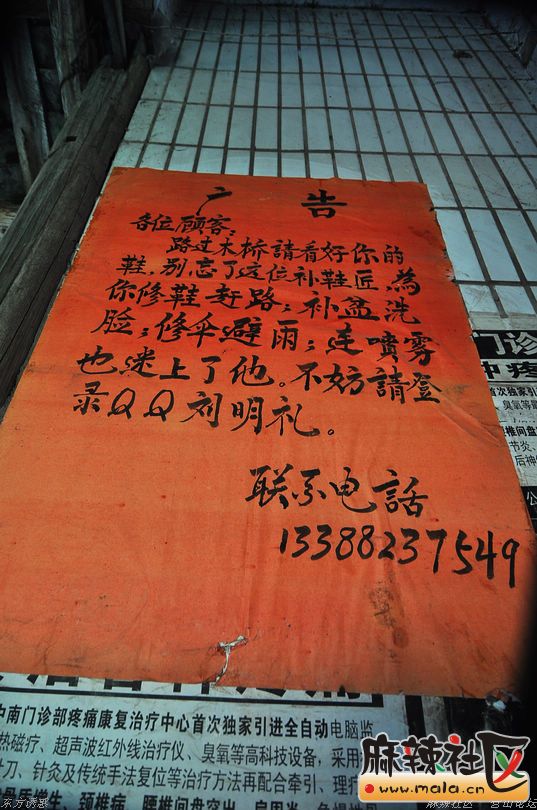 麻辣社区
www.mala.cn
广 告
各位顾客:
路过木桥請看好你的
鞋,别忘了这位补鞋匠,為
你修鞋赶路;补盆洗
脸;修伞避雨;连噴雾
也迷上了他。不妨請登
录QQ刘明礼。
联系电話
13388237549
门诊
中疼
首次独家引
臭氧等
椎间盘
节炎、
后神
公
中南门诊部疼痛康复治疗中心首次独家引进全自动电脑监
热磁疗、超声波红外线治疗仪、臭氧等高科技设备,采用
针刀、针灸及传统手法复位等治疗方法再配合牵引、理疗
骨质增生、颈椎病、腰椎间盘突出、肩周炎
麻辣社区
www.mala.cn
东方诱惑
麻辣社区